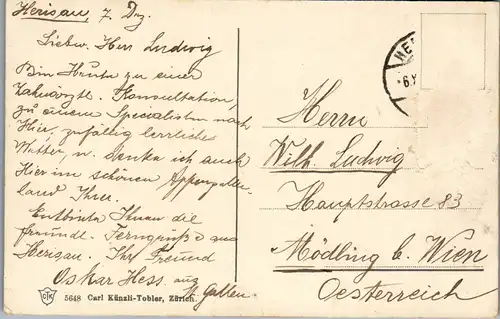 Herisau, 7. Dez.
Lieber Herr Ludwig
Bin Heute zu einer
Zahnärztl. Konsultation,
zu einem Spezialisten nach
Hier, zufällig herrliches
Wetter, u. denke ich auch
Hier im schönen Appenzeller-
land Ihrer.
Entbiete Ihnen die
freundl. Ferngrüße aus
Herisau. Ihr Freund
Oskar Hess aus
St. Gallen
Herrn
Wilh. Ludwig
Hauptstrasse 83
Mödling b. Wien
Oesterreich
HE
6.X
CTK
5648 Carl Künzli-Tobler, Zürich.